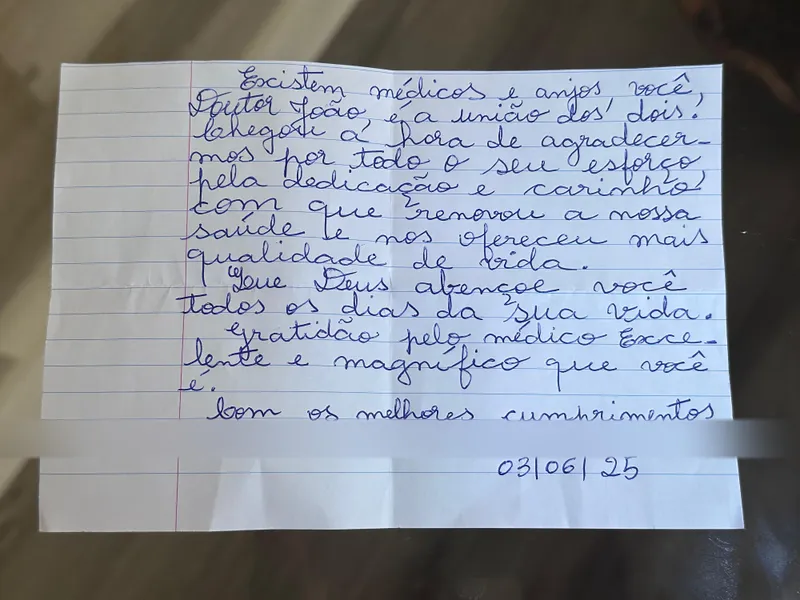 Existem médicos e anjos você,
Doutor João, é a união dos dois!
Chegou a hora de agradecer-
mos por todo o seu esforço,
pela dedicação e carinho
com que renovou a nossa
saúde e nos ofereceu mais
qualidade de vida.
Que Deus abençoe você
todos os dias da sua vida.
Gratidão pelo médico Exce-
lente e magnífico que você
é.
Com os melhores cumprimentos
03/06/25